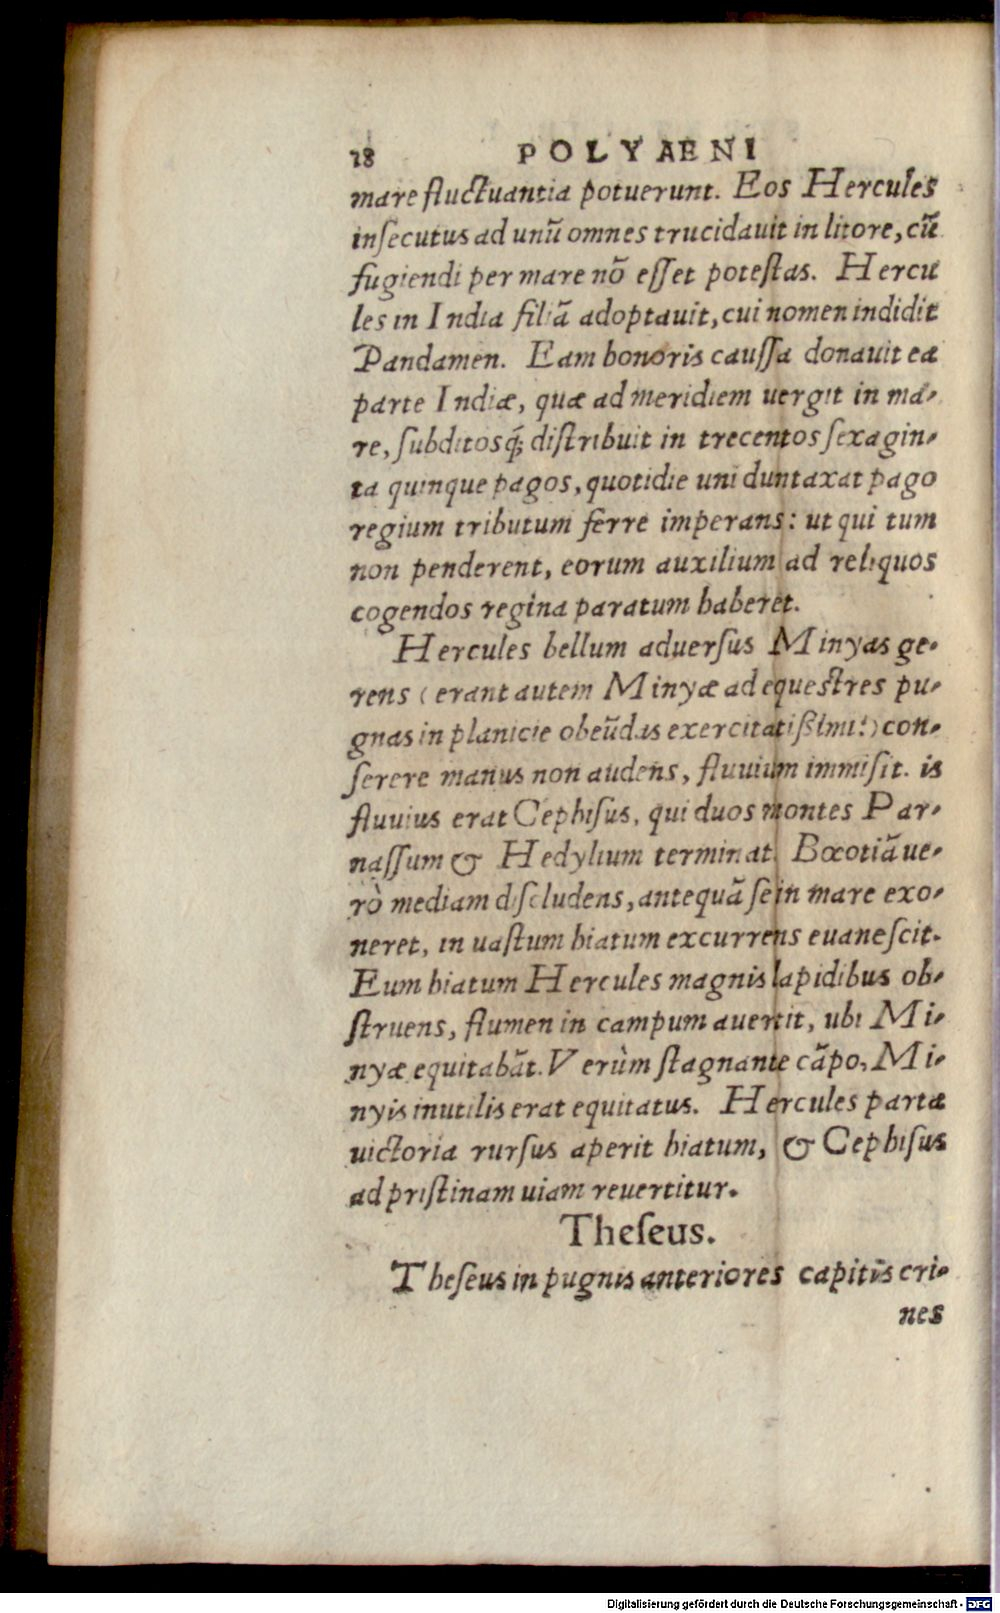 18 POLYAENI
mare fluctuantia potuerunt. Eos Hercules
insecutus ad unũ omnes trucidauit in litore, cũ
fugiendi per mare nõ esset potestas. Hercu
les in India filiã adoptauit, cui nomen indidit
Pandamen. Eam honoris caussa donauit ea
parte Indiæ, quæ ad meridiem uergit in ma-
re, subditosq́; distribuit in trecentos sexagin-
ta quinque pagos, quotidie uni duntaxat pago
regium tributum ferre imperans: ut qui tum
non penderent, eorum auxilium ad reliquos
cogendos regina paratum haberet.
Hercules bellum aduersus Minyas ge-
rens (erant autem Minyæ ad equestres pu-
gnas in planicie obeũdas exercitatißimi:) con-
serere manus non audens, fluuium immisit. is
fluuius erat Cephisus, qui duos montes Par-
nassum & Hedylium terminat. Bœotiã ue-
rò mediam discludens, antequã se in mare exo-
neret, in uastum hiatum excurrens euanescit.
Eum hiatum Hercules magnis lapidibus ob-
struens, flumen in campum auertit, ubi Mi-
nyæ equitabãt. Verùm stagnante cãpo, Mi-
nyis inutilis erat equitatus. Hercules parta
uictoria rursus aperit hiatum, & Cephisus
ad pristinam uiam reuertitur.
Theseus.
Theseus in pugnis anteriores capitis cri-
nes
Digitalisierung gefördert durch die Deutsche Forschungsgemeinschaft - DFG